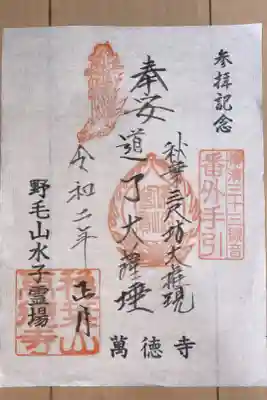 参拝記念
番外手引
秋葉三尺坊大権現
奉安
道了大薩埵
令和二年
正月
野毛山水子霊場
萬德寺